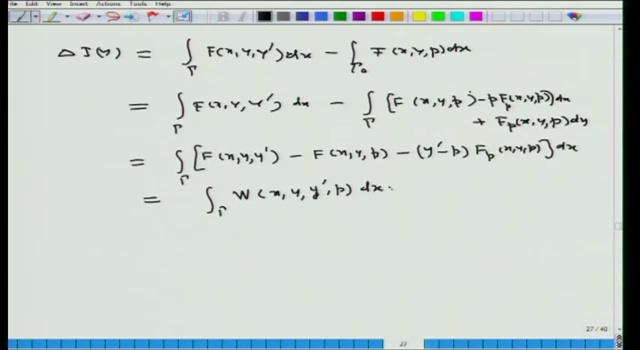 File View Insert Actions Tools Help
Δ J(y) = ∫_Γ F(x,y,y')dx − ∫_Γ₀ F(x,y,p)dx
= ∫_Γ F(x,y,y') dx − ∫_Γ [F(x,y,p) − p F_p(x,y,p)]dx
+ F_p(x,y,p)dy
= ∫_Γ [F(x,y,y') − F(x,y,p) − (y'−p) F_p(x,y,p)]dx
= ∫_Γ W(x,y,y',p) dx.
27 / 40
27